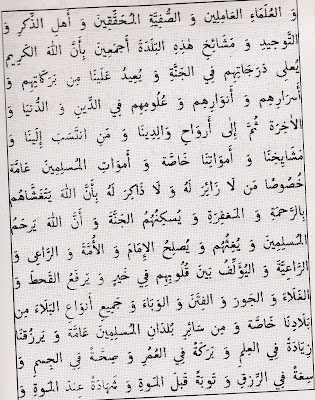 وَ العُلَمَاءِ العَامِلِينَ وَ الصُّفِيَّةِ المُحَقِّقِينَ وَ أَهلِ الذِّكرِ وَ
التَّوحِيدِ وَ مَشَائِخِ هٰذِهِ البَلدَةِ أَجمَعِينَ بِأَنَّ اللهَ الكَرِيم
يُعلِى دَرَجَاتِهِم فِي الجَنَّةِ وَ يُعِيدُ عَلَينَا مِن بَرَكَاتِهِم وَ
أَسرَارِهِم وَ أَنوَارِهِم وَ عُلُومِهِم فِي الدِّينِ وَ الدُّنيَا وَ
الأخِرَةِ ثُمَّ إِلَى أَروَاحِ وَالِدِينَا وَ مَنِ انتَسَبَ إِلَينَا وَ
مَشَايِخِنَا وَ أَموَاتِنَا خَاصَّة وَ أَموَاتِ المُسلِمِينَ عَامَّة
خُصُوصًا مَن لَا زَائِرَ لَهُ وَ لَا ذَاكِرَ لَهُ بِأَنَّ اللهَ يَتَغَشَّاهُم
بِالرَّحمَةِ وَ المَغفِرَةِ وَ يُسكِنُهُمُ الجَنَّةَ وَ أَنَّ اللهَ يَرحَمُ
المُسلِمِينَ وَ يُغِثُهُم وَ يُصلِحُ الإِمَامَ وَ الأُمَّةَ وَ الرَّاعِى وَ
الرَّاعِيَّةَ وَ اليُؤَلِّفُ بَينَ قُلُوبِهِم فِي خَيرٍ وَ يَرفَعُ القَحطَ وَ
الغَلَاءَ وَ الجَورَ وَ الفِتَنَ وَ الوَبَاءَ وَ جَمِيعَ أَنوَاعِ البَلَاءِ مِن
بِلَادِنَا خَاصَّة وَ مِن سَائِرِ بُلدَانِ المُسلِمِينَ عَامَّة وَ يَرزُقنَا
زِيَادَةً فِي العِلمِ وَ بَرَكَةً فِي العُمُرِ وَ صِحَّةً فِي الجِسمِ وَ
سِعَةً فِي الرِّزقِ وَ تَوبَةً قَبلَ المَوةِ وَ شَهَادَةً عِندَ المَوةِ وَ